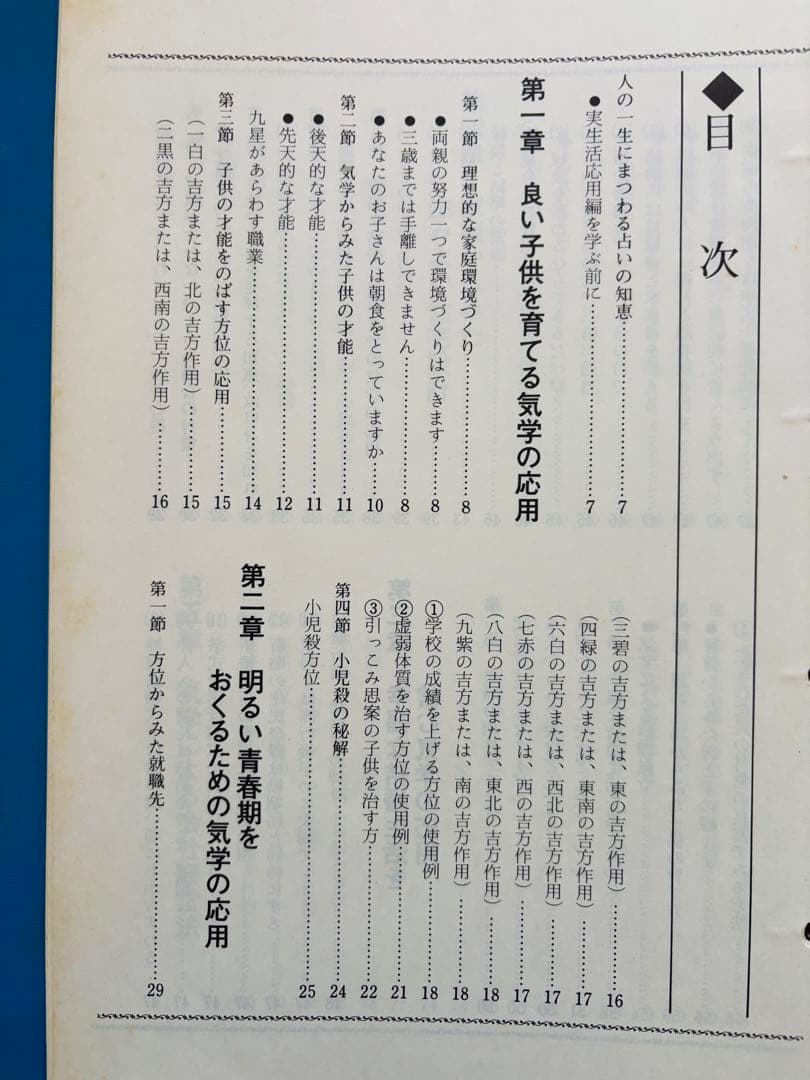 ◆目次
人の一生にまつわる占いの知恵…………7
●実生活応用編を学ぶ前に…………7
第一章 良い子供を育てる気学の応用
第一節 理想的な家庭環境づくり…………8
●両親の努力一つで環境づくりはできます…………8
●三歳までは手離しできません…………8
●あなたのお子さんは朝食をとっていますか…………10
第二節 気学からみた子供の才能…………11
●後天的な才能…………11
●先天的な才能…………12
九星があらわす職業…………14
第三節 子供の才能をのばす方位の応用…………15
(一白の吉方または、北の吉方作用)…………15
(二黒の吉方または、西南の吉方作用)…………16
(三碧の吉方または、東の吉方作用)…………16
(四緑の吉方または、東南の吉方作用)…………17
(六白の吉方または、西北の吉方作用)…………17
(七赤の吉方または、西の吉方作用)…………17
(八白の吉方または、東北の吉方作用)…………18
(九紫の吉方または、南の吉方作用)…………18
①学校の成績を上げる方位の使用例…………18
②虚弱体質を治す方位の使用例…………21
③引っこみ思案の子供を治す方…………22
第四節 小児殺の秘解…………24
小児殺方位…………25
第二章 明るい青春期を
おくるための気学の応用
第一節 方位からみた就職先…………29